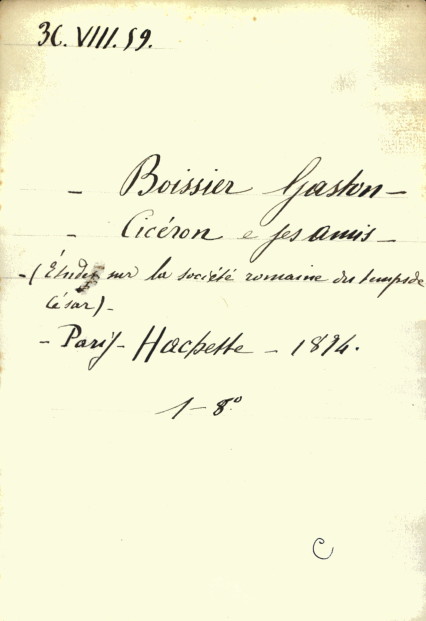 3C. VIII. 59.
- Boissier Gaston -
- Cicéron e ses amis -
- (Études sur la société romaine du temps de
César) -
- Paris - Hachette - 1894.
1 - 8°
C